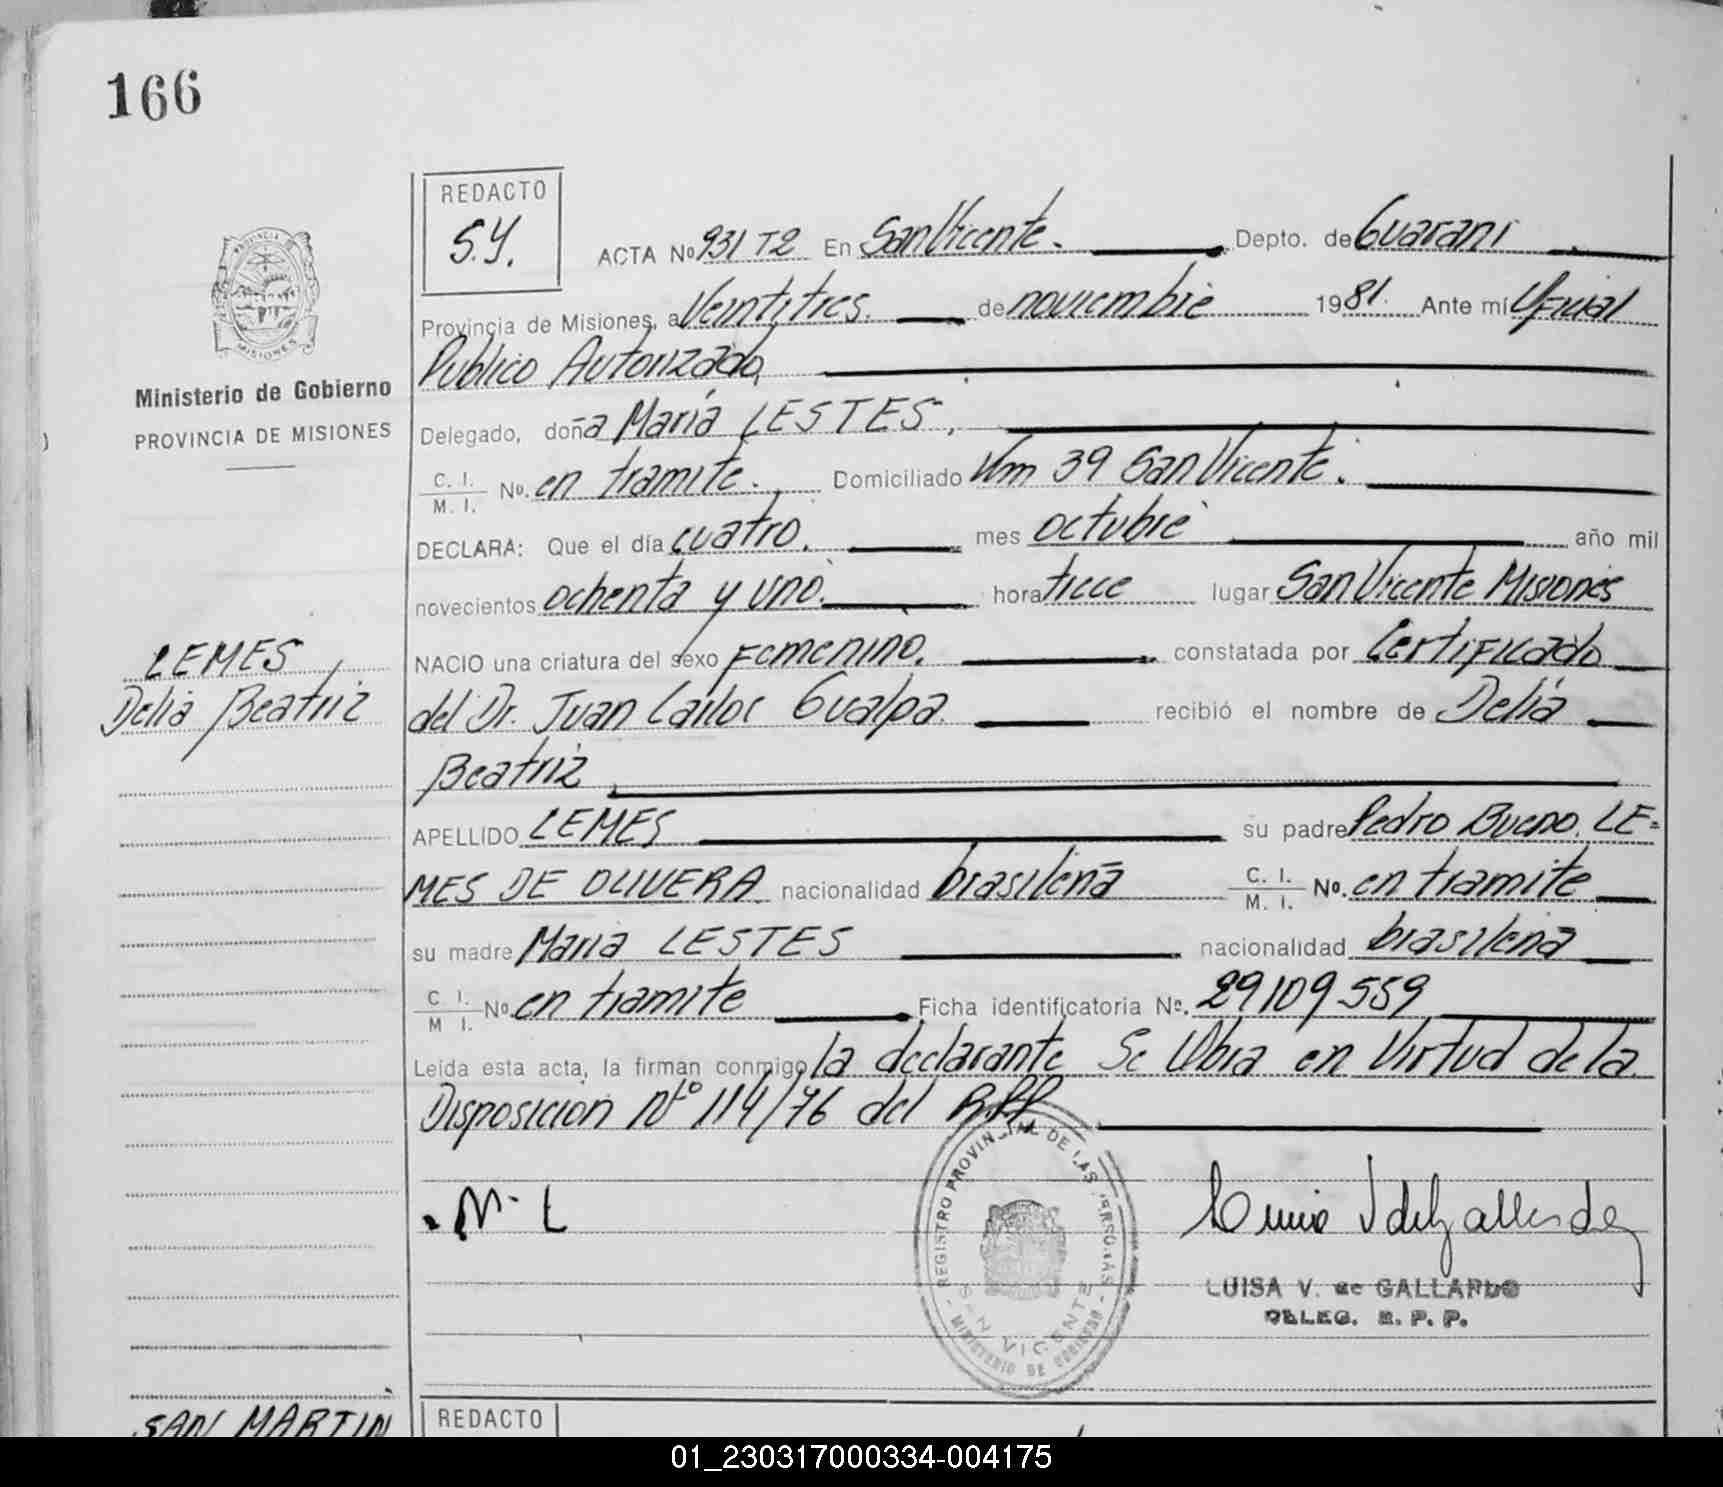 166
REDACTO
S.Y.
ACTA Nº 931 T2 En San Vicente. Depto. de Guaraní
Provincia de Misiones, a Veintitres. de noviembre 1981. Ante mí Oficial
Publico Autorizado
Ministerio de Gobierno
PROVINCIA DE MISIONES
Delegado, doña María LESTES,
C. I.
M. I. No. en tramite. Domiciliado Km 39 San Vicente.
DECLARA: Que el día cuatro. mes octubre año mil
novecientos ochenta y uno. hora trece lugar San Vicente Misiones
NACIO una criatura del sexo Femenino. constatada por Certificado
LEMES,
Delia Beatriz
del Dr. Juan Carlos Gualpa. recibió el nombre de Delia
Beatriz
APELLIDO LEMES su padre Pedro Bueno. LE=
MES DE OLIVERA nacionalidad brasileña C. I.
M. I. No. en tramite
su madre Maria LESTES nacionalidad brasileña
C I.
M I. No. en tramite Ficha identificatoria No. 29109559
Leída esta acta, la firman conmigo la declarante Se labra en Virtud de la
Disposición Nº 114/76 del R.P.P.
M. L
REGISTRO PROVINCIAL DE LAS PERSONAS
SAN VICENTE
- MINISTERIO DE GOBIERNO -
LUISA V. de GALLARDO
DELEG. R. P. P.
SAN MARTIN
REDACTO
01_230317000334-004175